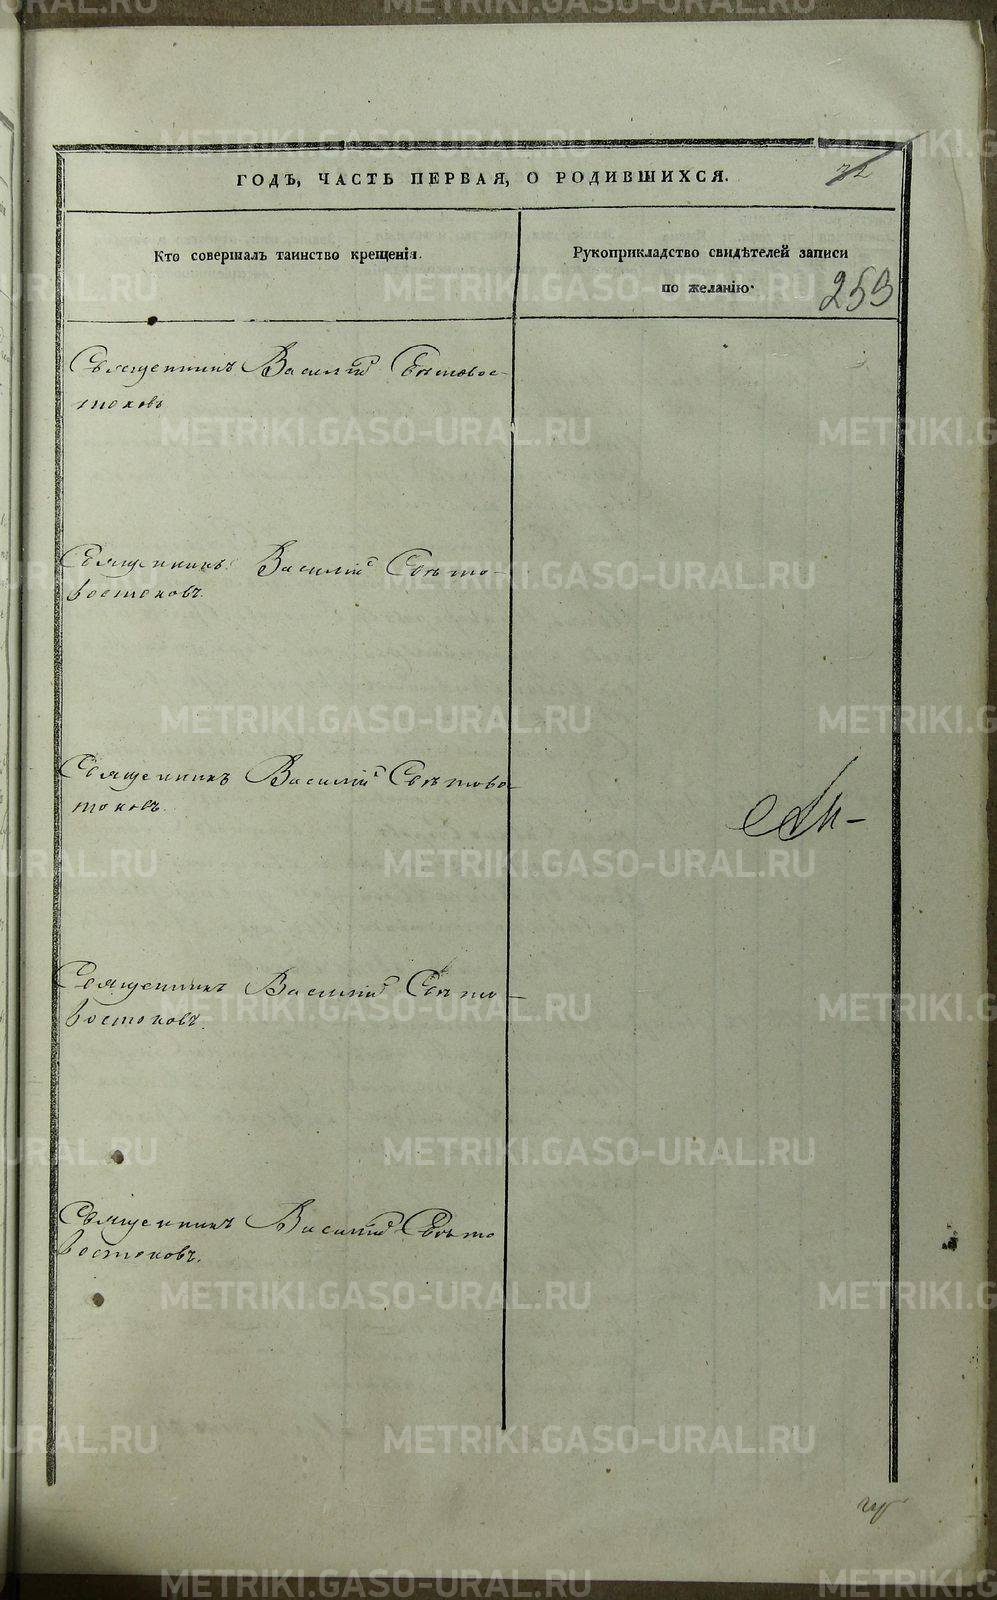 ГОДЪ, ЧАСТЬ ПЕРВАЯ, О РОДИВШИХСЯ.
Кто совершалъ таинство крещенія.
Рукоприкладство свидѣтелей записи
по желанію.
259
Священникъ Василій Свѣтовос-
токовъ
Священникъ Василій Свѣто-
востоковъ.
Священникъ Василій Свѣтовос-
токовъ.
Священникъ Василій Свѣто-
востоковъ.
Священникъ Василій Свѣто
востоковъ.
METRIKI.GASO-URAL.RU